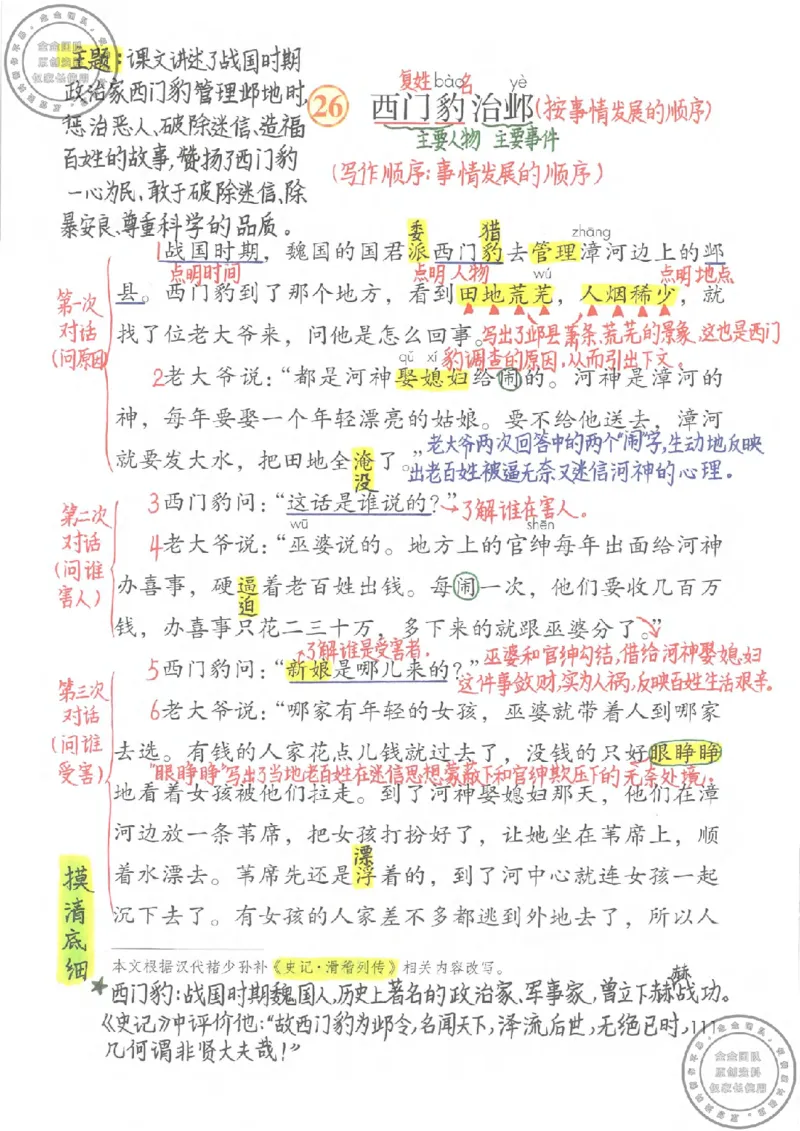 企企团队
原创资料
仅家长使用
主题:课文讲述了战国时期
政治家西门豹管理邺地时,
惩治恶人、破除迷信、造福
百姓的故事,赞扬了西门豹
一心为民、敢于破除迷信、除
暴安良、尊重科学的品质。
复姓 bào 名 yè
26 西门豹治邺(按事情发展的顺序)
主要人物 主要事件
(写作顺序:事情发展的顺序)
委 猎 zhāng
1战国时期,魏国的国君派西门豹去管理漳河边上的邺
点明时间 点明人物 wú 点明地点
县。西门豹到了那个地方,看到田地荒芜,人烟稀少,就
第一次
对话
(问原因)
找了位老大爷来,问他是怎么回事。
写出了邺县萧条、荒芜的景象,这也是西门
豹调查的原因,从而引出下文。
qǔ xí
2老大爷说:“都是河神娶媳妇给闹的。河神是漳河的
神,每年要娶一个年轻漂亮的姑娘。要不给他送去,漳河
就要发大水,把田地全淹了。”
没
老大爷两次回答中的两个“闹”字,生动地反映
出老百姓被逼无奈又迷信河神的心理。
第二次
对话
(问谁
害人)
3西门豹问:“这话是谁说的?”
→了解谁在害人。
wū shēn
4老大爷说:“巫婆说的。地方上的官绅每年出面给河神
办喜事,硬逼着老百姓出钱。每闹一次,他们要收几百万
迫
钱,办喜事只花二三十万,多下来的就跟巫婆分了。”
了解谁是受害者.
巫婆和官绅勾结,借给河神娶媳妇
这件事敛财,实为人祸,反映百姓生活艰辛。
第三次
对话
(问谁
受害)
5西门豹问:“新娘是哪儿来的?”
6老大爷说:“哪家有年轻的女孩,巫婆就带着人到哪家
去选。有钱的人家花点儿钱就过去了,没钱的只好眼睁睁
“眼睁睁”写出了当地老百姓在迷信思想蒙蔽下和官绅欺压下的无奈处境。
地看着女孩被他们拉走。到了河神娶媳妇那天,他们在漳
河边放一条苇席,把女孩打扮好了,让她坐在苇席上,顺
漂
着水漂去。苇席先还是浮着的,到了河中心就连女孩一起
沉下去了。有女孩的人家差不多都逃到外地去了,所以人
摸清底细
本文根据汉代褚少孙补《史记·滑稽列传》相关内容改写。
赫
★西门豹:战国时期魏国人,历史上著名的政治家、军事家,曾立下赫赫战功。
《史记》中评价他:“故西门豹为邺令,名闻天下,泽流后世,无绝已时,
111
几何谓非贤大夫哉!”
企企团队
原创资料
仅家长使用